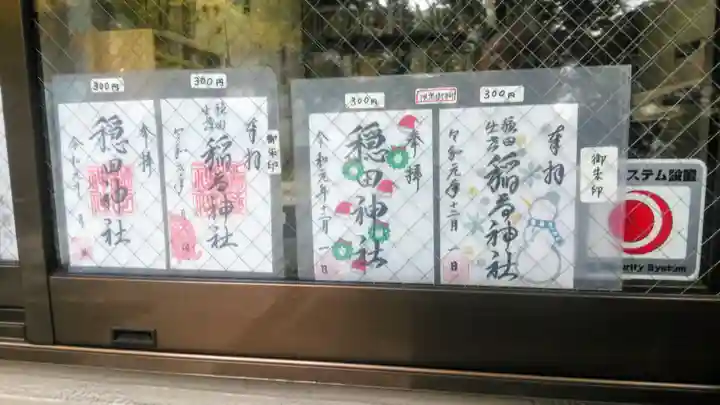 300円
奉拝
穏田神社
令和元年 月
300円
奉拝
穏田
稲荷神社
令和元年 月
御朱印
300円
奉拝
穏田神社
令和元年十二月一日
300円
奉拝
穏田
稲荷神社
令和元年十二月一日
御朱印
ステム設置
urity System